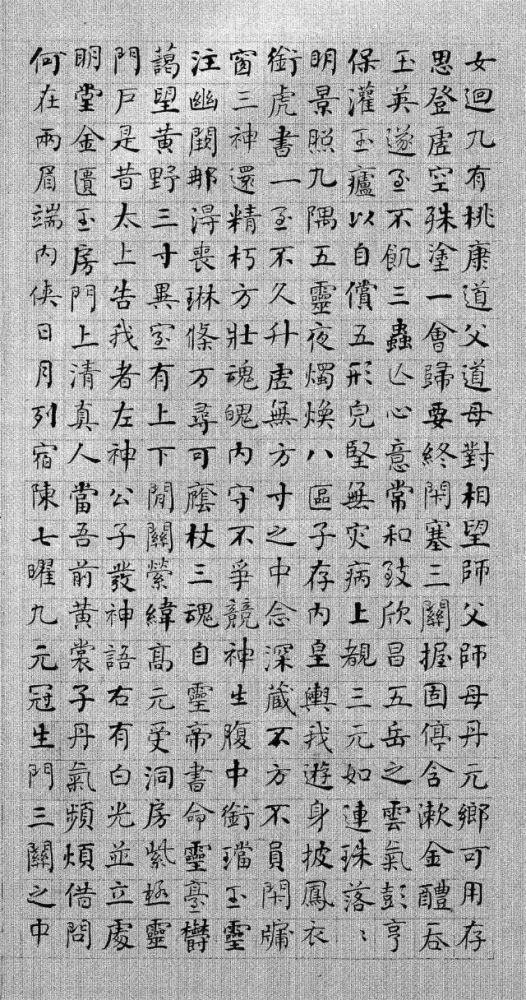 女迴九有桃康道父道母對相望師父師母丹元鄉可用存
思登虛空殊塗一會歸要終閇塞三關握固停含漱金醴吞
玉英遂至不飢三蟲亾心意常和致欣昌五岳之雲氣彭亨
保灌玉廬以自償五形完堅無灾病上覩三元如連珠落〻
明景照九隅五靈夜燭煥八區子存內皇輿我遊身披鳳衣
銜虎書一至不久升虛無方寸之中念深藏不方不員閇牖
窗三神還精朽方壯魂魄內守不爭競神生腹中銜璫玉靈
注幽闕那淂喪琳條万尋可䕃杖三魂自靈帝書命靈臺欝
藹望黃野三寸異室有上下閒關營緯髙元受洞房紫極靈
門戶是昔太上告我者左神公子發神語右有白光並立處
明堂金匱玉房門上清真人當吾前黃裳子丹氣頻煩借問
何在兩眉端內俠日月列宿陳七曜九元冠生門三關之中